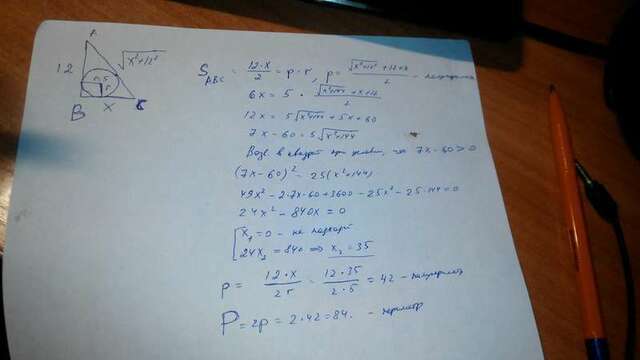 A
12
√x²+12²
r=5
r
B
x
C
S ABC = 12·x/2 = p·r, p = (√x²+12² + 12+x)/2 - полупериметр
6x = 5 · (√x²+144 + x+12)/2
12x = 5√x²+144 + 5x + 60
7x - 60 = 5√x²+144
Возв в квадрат при условии, что 7x-60>0
(7x-60)² = 25(x²+144)
49x² - 2·7x·60 + 3600 - 25x² - 25·144 = 0
24x² - 840x = 0
x₁ = 0 - не подходит
24x₂ = 840 ⟹ x₂ = 35
p = 12·x/2r = 12·35/2·5 = 42 - полупериметр
P = 2p = 2·42 = 84. - периметр